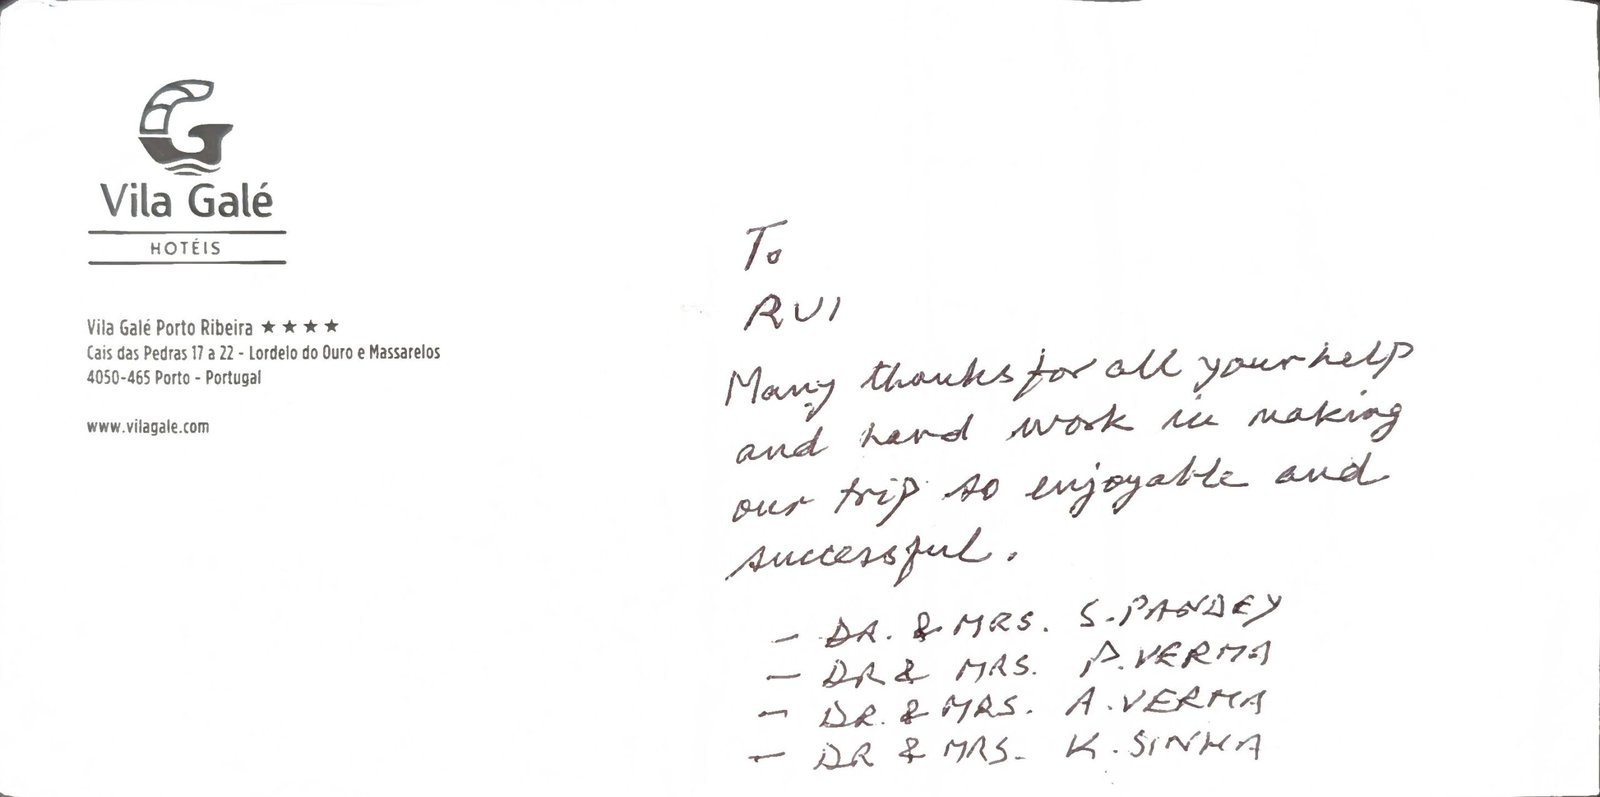 Vila Galé
HOTÉIS
Vila Galé Porto Ribeira ★★★★
Cais das Pedras 17 a 22 - Lordelo do Ouro e Massarelos
4050-465 Porto - Portugal
www.vilagale.com
To
RUI
Many thanks for all your help
and hard work in making
our trip so enjoyable and
successful.
- DR. & MRS. S. PANDEY
- DR & MRS. P. VERMA
- DR. & MRS. A. VERMA
- DR & MRS. K. SINHA